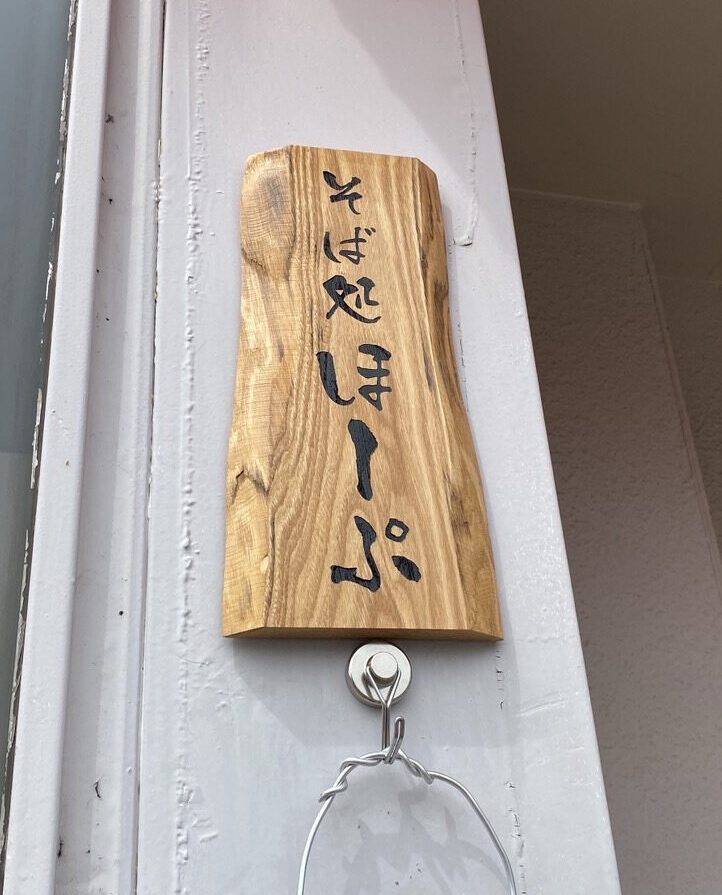 そば処ほーぷ